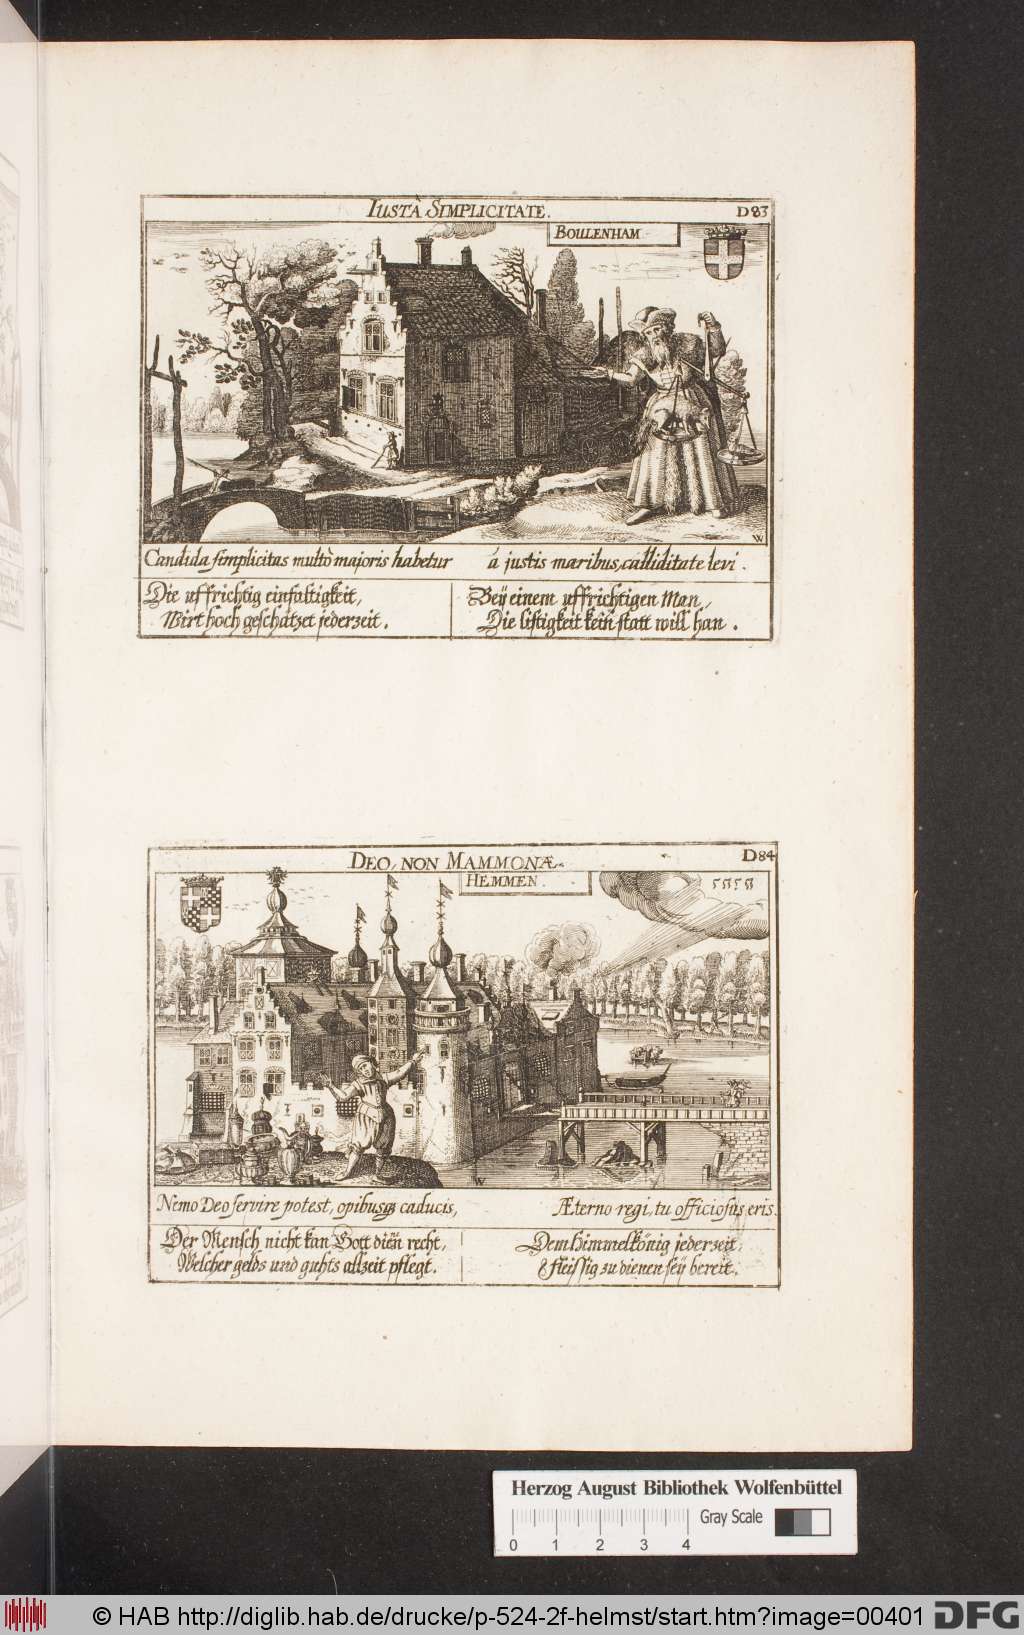 IUSTÀ SIMPLICITATE.
D83
BOULENHAM
W
Candida simplicitas multò majoris habetur
á justis maribus, calliditate levi.
Die uffrichtig einfaltigkeit,
Wirt hoch geschätzet jederzeit.
Beÿ einem uffrichtigen Man,
Die listigkeit kein statt will han.
DEO, NON MAMMONÆ.
D84
HEMMEN.
W
Nemo Deo servire potest, opibusq; caducis,
Æterno regi, tu officiosus eris.
Der Mensch nicht kan Gott dien̄ recht,
Welcher gelds und guhts allzeit pflegt.
Dem Himmelkönig jederzeit,
fleissig zu dienen seÿ bereit.
Herzog August Bibliothek Wolfenbüttel
Gray Scale
0 1 2 3 4
© HAB http://diglib.hab.de/drucke/p-524-2f-helmst/start.htm?image=00401
DFG